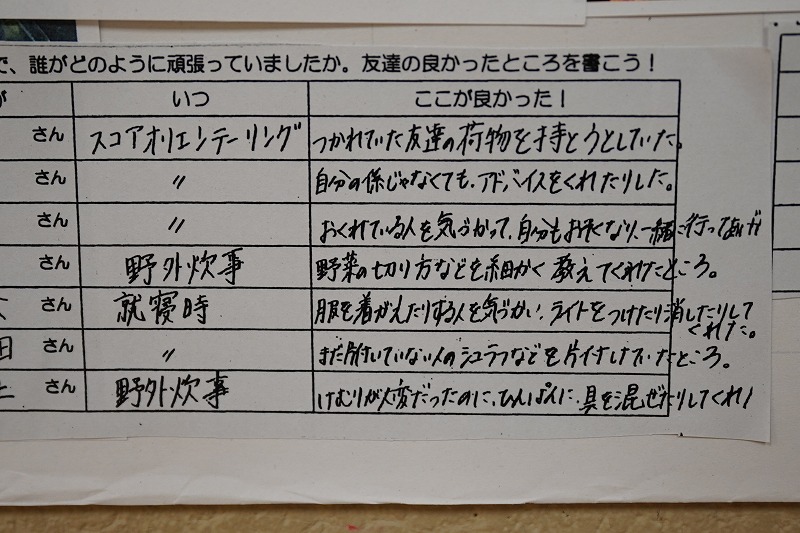 で、誰がどのように頑張っていましたか。友達の良かったところを書こう！
が いつ ここが良かった！
さん スコアオリエンテーリング つかれていた友達の荷物を持とうとしていた。
さん 〃 自分の係じゃなくても、アドバイスをくれたりした。
さん 〃 おくれている人を気づかって、自分もおそくなり、一緒に行ってあげ
さん 野外炊事 野菜の切り方などを細かく教えてくれたところ。
さん 就寝時 服を着がえたりする人を気づかい、ライトをつけたり消したりして
くれた。
田 さん 〃 まだ片付いていない人のシュラフなどを片付けしていたところ。
さん 野外炊事 けむりが大変だったのに、ひんぱんに、具を混ぜたりしてくれ